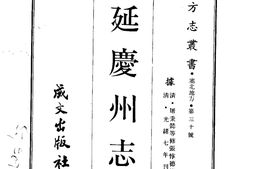 方志叢書·塞北地方·第三十號
據清·屠秉懿等修張惇德
清·光緒七年刊
延慶州志
成文出版社